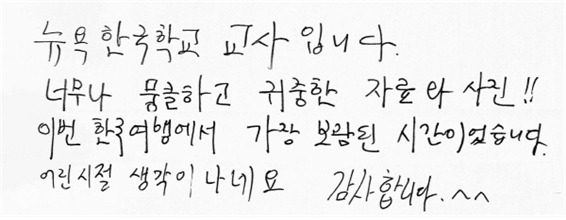 뉴욕 한국학교 교사입니다.
너무나 뭉클하고 귀중한 자료와 사진!!
이번 한국여행에서 가장 보람된 시간이었습니다.
어린시절 생각이 나네요 감사합니다.^^